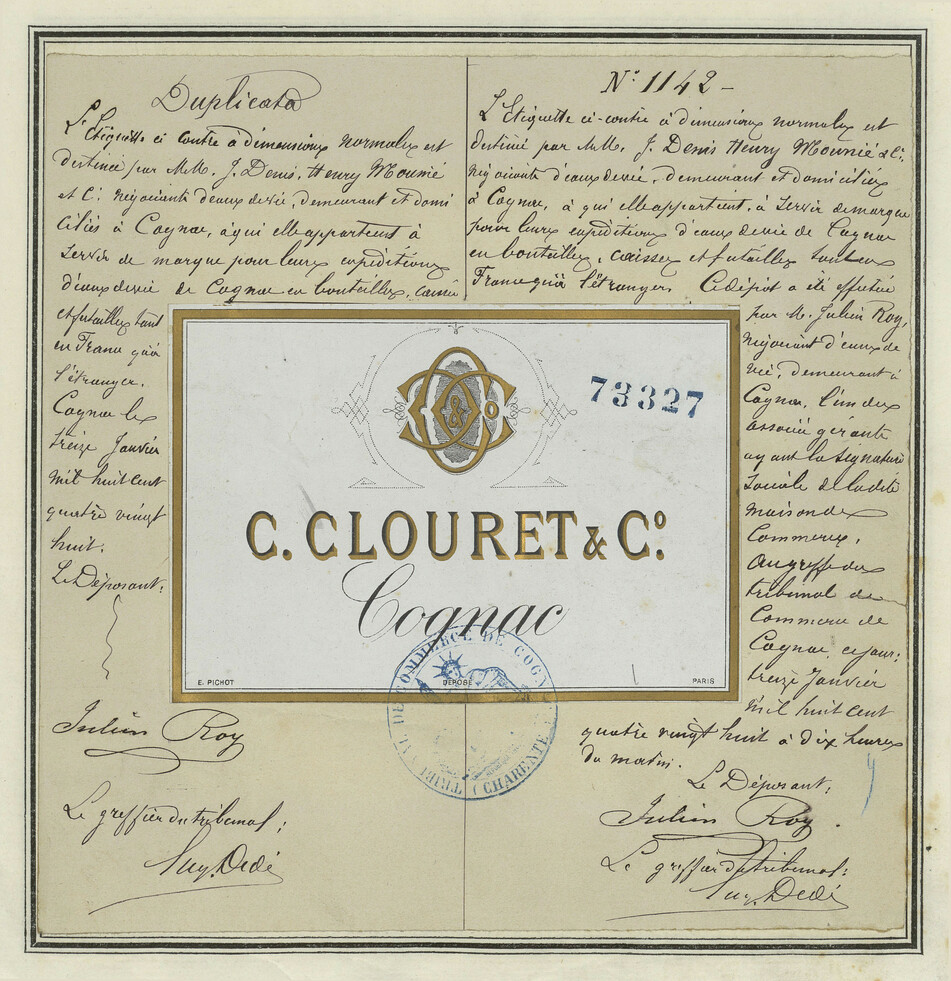 Duplicata
L'Etiquette ci contre à dimensions normales est
destiné par M.M. J. Denis, Henry Mounié
et Cie. négociants d'eaux de vie, demeurant et domi
ciliés à Cognac, à qui elle appartient à
servir de marque pour leurs expéditions
d'eaux de vie de Cognac en bouteilles, caisses
et futailles tant
en France qu'à
l'étranger.
Cognac le
treize Janvier
mil huit cent
quatre vingt
huit.
Le Déposant:
Julien Roy
Le greffier du tribunal;
Aug. Dedé
N° 1142 -
L'Etiquette ci-contre à dimensions normales est
destiné par M.M. J. Denis Henry Mounié & Cie.
négociants d'eaux de vie, demeurant et domiciliés
à Cognac, à qui elle appartient, à servir de marque
pour leurs expéditions d'eaux de vie de Cognac
en bouteilles, caisses et futailles tant en
France qu'à l'étranger. Ce dépôt a été effectué
par M. Julien Roy,
négociant d'eaux de
vie, demeurant à
Cognac, l'un des
associé gérants
ayant la signature
sociale de la dite
maison de
Commerce,
au greffe du
tribunal de
Commerce de
Cognac, ce jour:
treize Janvier
mil huit cent
quatre vingt huit à dix heures
du matin.
Le Déposant;
Julien Roy.
Le greffier du tribunal:
Aug. Dedé
73327
C & Co
C. CLOURET & Co.
Cognac
E. PICHOT
DÉPOSÉ
PARIS
TRIBUNAL DE COMMERCE DE COGNAC
(CHARENTE)